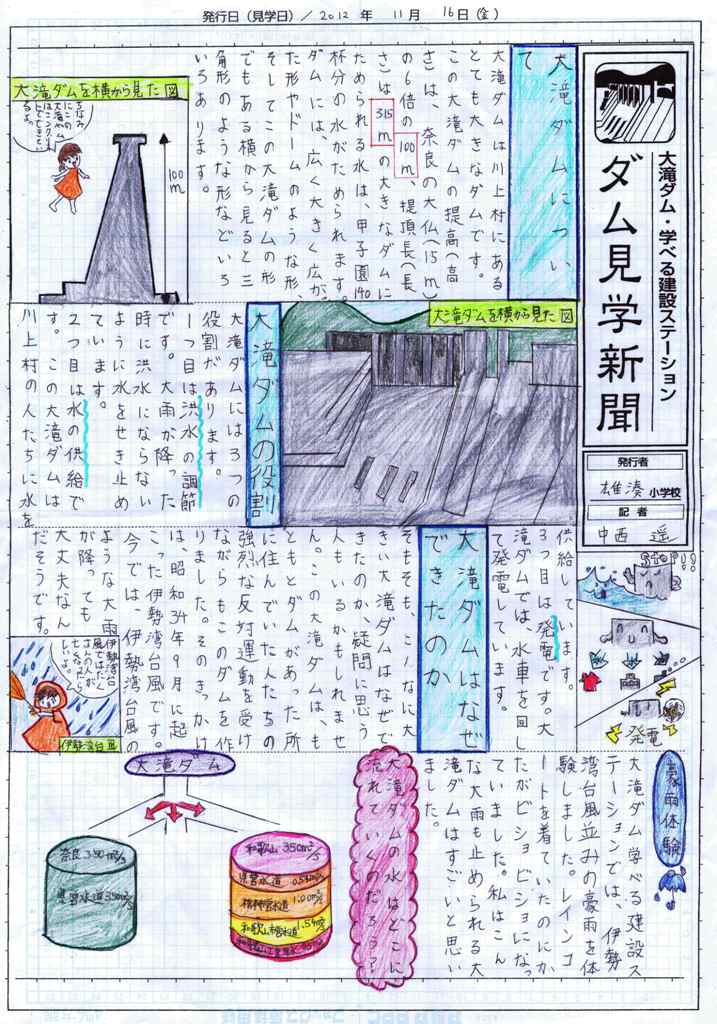 発行日（見学日）／2012年11月16日（金）
大滝ダム・学べる建設ステーション
ダム見学新聞
発行者
雄湊小学校
記者
中西 遥
大滝ダムについ
て
大滝ダムは川上村にある
とても大きなダムです。
この大滝ダムの提高（高
さ）は、奈良の大仏（15m）
の6倍の100m、提頂長（長
さ）は315mの大きなダムに
ためられる水は、甲子園140
杯分の水がためられます。
ダムには、広く大きく広が
た形やドームのような形、
そしてこの大滝ダムの形
でもある横から見ると三
角形のような形などいろ
いろあります。
大滝ダムを横から見た図
100m
大滝ダムを横から見た図
大滝ダムの役割
大滝ダムには3つの
役割だあります。
1つ目は洪水の調節
です。大雨が降った
時に洪水にならない
ように水をせき止め
ています。
2つ目は水の供給で
す。この大滝ダムは
川上村の人たちに水を
供給しています。
3つ目は発電です。大
滝ダムでは水車を回し
て発電しています。
STOP!!
発電
大滝ダムはなぜ
できたのか
そもそも、こーなに大
きい大滝ダムはなぜで
きたのか、疑問に思う
人もいるかもしれませ
ん。この大滝ダムは、も
ともとダムがあった所
に住んでいた人たちの
強烈な反対運動を受け
ながらもこのダムを作
りました。そのきっかけ
は、昭和34年9月に起
こった伊勢湾台風です。
今では、伊勢湾台風の
ような大雨
が降っても
大丈夫なん
だそうです。
伊勢湾台風
豪雨体験
大滝ダム学べる建設ス
テーションでは、伊勢
湾台風並みの豪雨を体
験しました。レインコ
ートを着ていたのにか
たがビショビショになっ
ていました。私はこん
な大雨も止められる大
滝ダムはすごいと思い
ました。
大滝ダムの水はどこに
流れていくのだろう?
大滝ダム
和歌山 350m³/s
県営水道 0.54m³/s
橋本市営水道 1.00m³/s
和歌山市営水道 1.54m³/s
奈良 350m³/s
県営水道 350m³/s